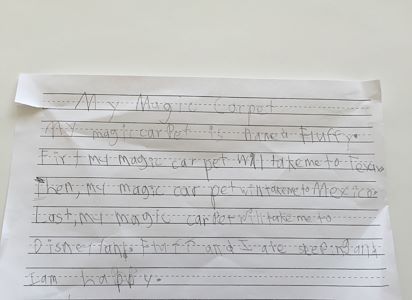 My Magic Carpet
My magic carpet is named Fluffy.
First my magic carpet will take me to Texas.
Then, my magic carpet will take me to Mexico.
Last, my magic carpet will take me to
Disneyland. and I are
I am happy.